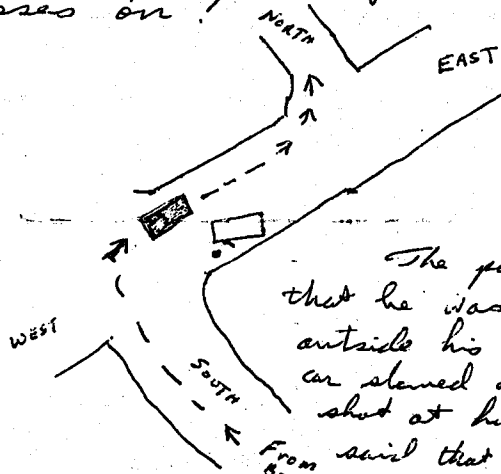 sses on!
NORTH
EAST
WEST
SOUTH
From
The po
that he was
outside his
car slowed
shot at h
said that